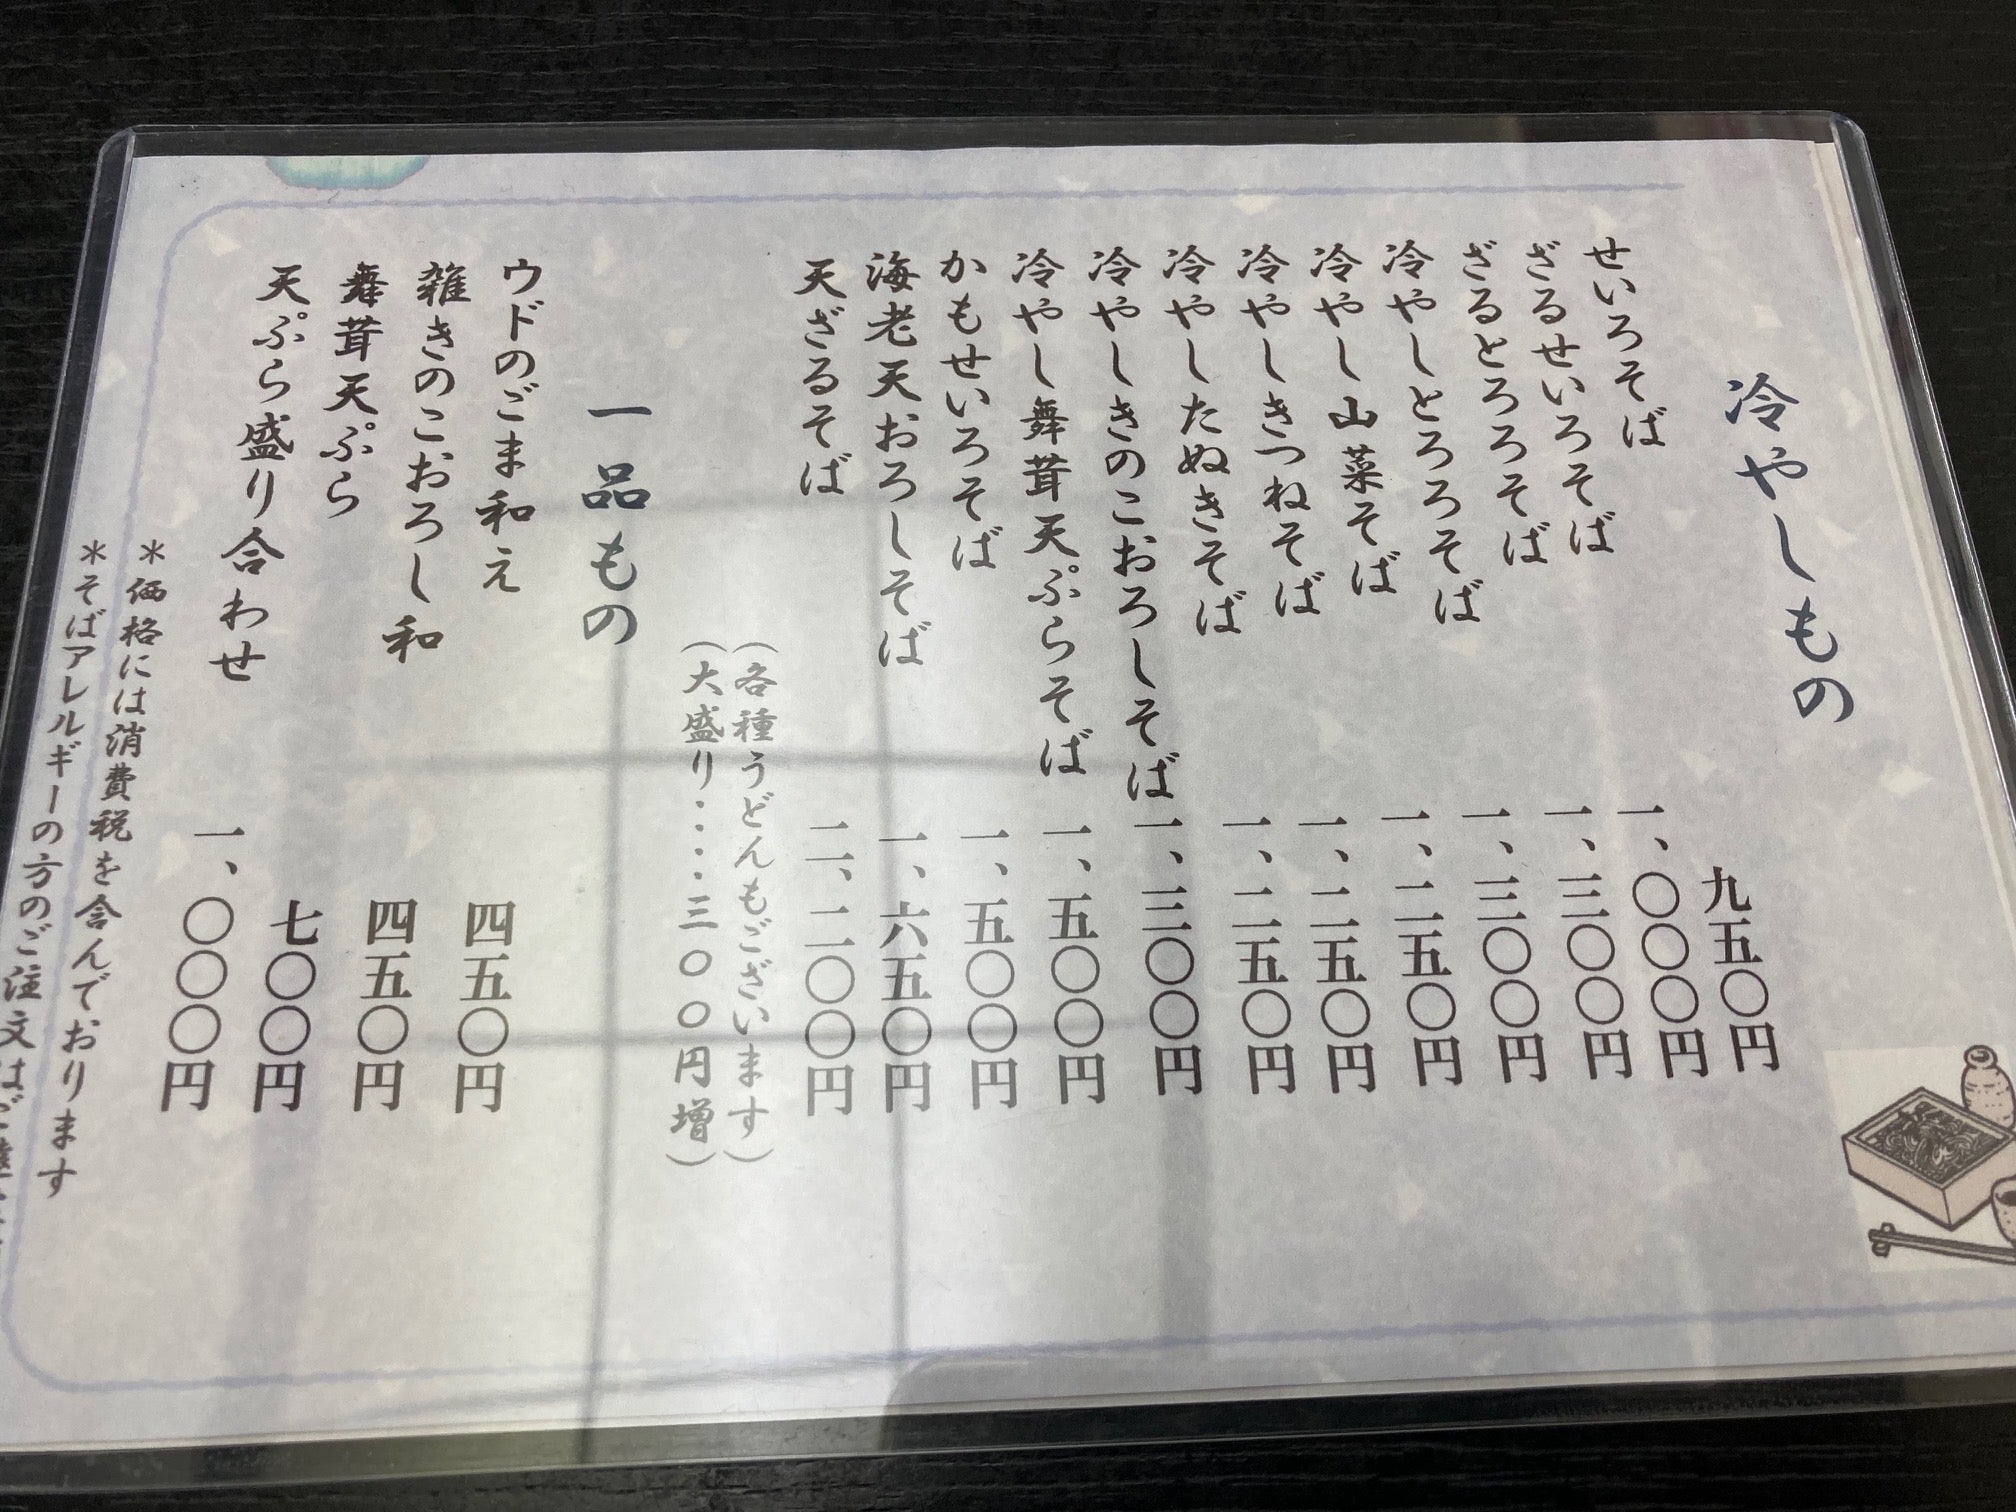 冷やしもの
せいろそば 九五〇円
ざるせいろそば 一、〇〇〇円
ざるとろろそば 一、三〇〇円
冷やしとろろそば 一、三〇〇円
冷やし山菜そば 一、二五〇円
冷やしきつねそば 一、二五〇円
冷やしたぬきそば 一、二五〇円
冷やしきのこおろしそば 一、三〇〇円
冷やし舞茸天ぷらそば 一、五〇〇円
かもせいろそば 一、五〇〇円
海老天おろしそば 一、六五〇円
天ざるそば 二、二〇〇円
（各種うどんもございます）
（大盛り・・・・三〇〇円増）
一品もの
ウドのごま和え 四五〇円
雑きのこおろし和 四五〇円
舞茸天ぷら 七〇〇円
天ぷら盛り合わせ 一、〇〇〇円
＊価格には消費税を含んでおります
＊そばアレルギーの方のご注文はご